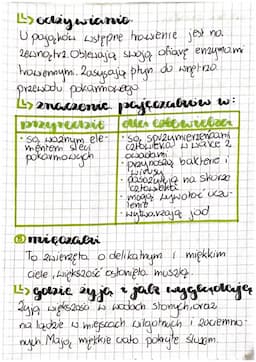 ↳ odżywianie
U pająków wstępne trawienie jest na
zewnątrz. Oblewają swoją ofiarę enzymami
trawiennymi. Zasysają płyn do wnętrza
przewodu pokarmowego
↳ znaczenie pajęczaków w:
przyrodzie
• są ważnym ele-
mentem sieci
pokarmowych
dla człowieka
• są sprzymierzeńcami
człowieka w walce z
owadami
• przynoszą bakterie i
wirusy
• pasożytują na skórze
człowieka
• mogą wywołać uczu-
lenie
• wytwarzają jad
mięczaki
To zwierzęta o delikatnym i miękkim
ciele, większość osłonięta muszlą.
↳ gdzie żyją i jak wyglądają
Żyją większość w wodach słonych, oraz
na lądzie w miejscach wilgotnych i zaciemnio-
nych. Mają miękkie ciało pokryte śluzem.